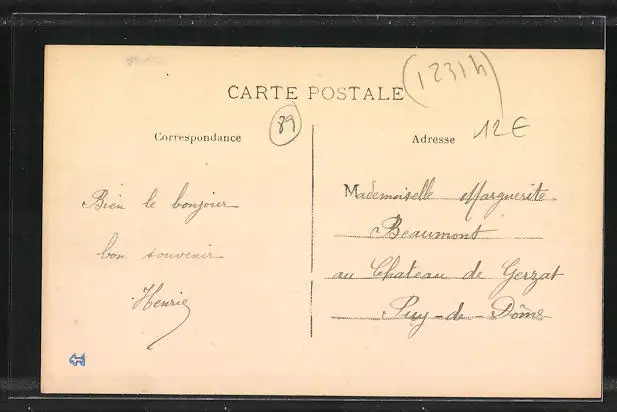 (1231h
CARTE POSTALE
89
12€
Correspondance
Adresse
Bien le bonjour
bon souvenir
Henrie
Mademoiselle Marguerite
Beaumont
au Chateau de Gerzat
Puy-de-Dôme